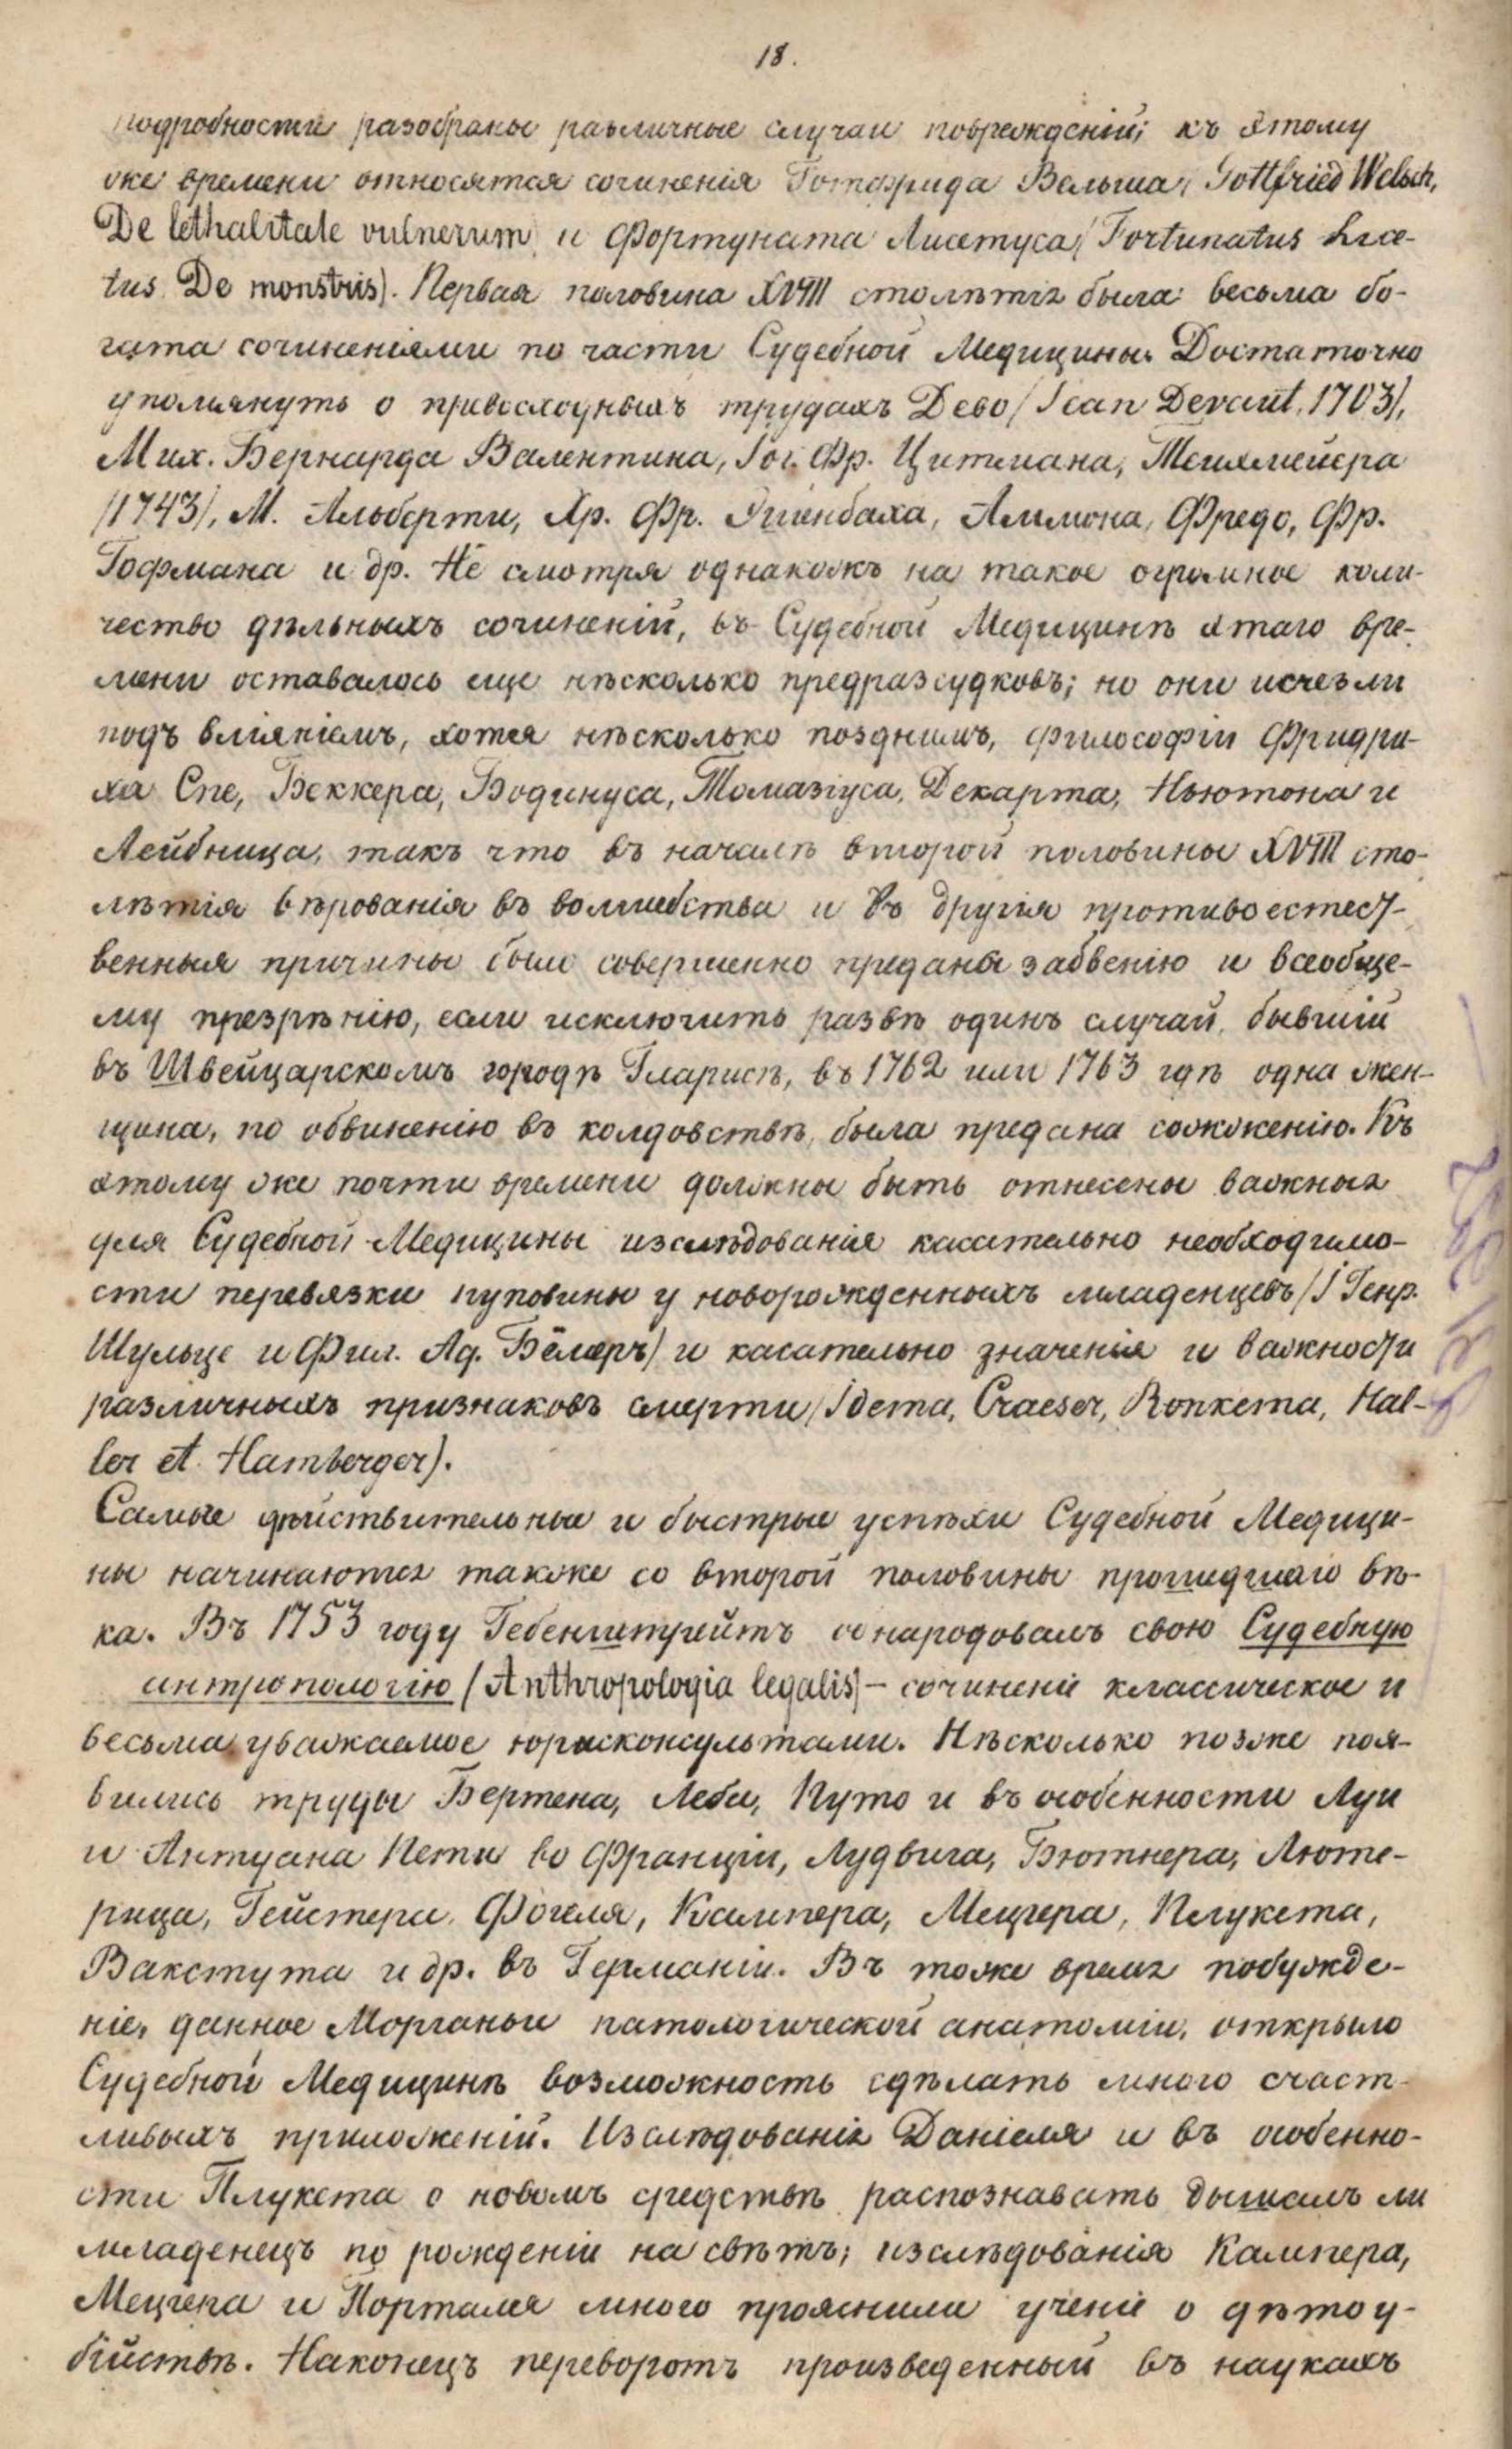 18.
подробности разобраны различные случаи поврежденій; къ этому
же времени относятся сочиненія Готфрида Вельша, Gottfried Welsch,
De lethalitate vulnerum и Фортуната Лисетуса (Fortunatus Lice-
tus De monstris). Первая половина XVIII столѣтія была весьма бо-
гата сочиненіями по части Судебной Медицины. Достаточно
упомянуть о превосходныхъ трудахъ Дево (Jean Devaut, 1703),
Мих. Бернарда Валентина, Іог. Фр. Цитмана, Тейхмейера
(1743), М. Альберти, Хр. Фр. Эшенбаха, Аммона, Фредо, Фр.
Гофмана и др. Не смотря однакожъ на такое огромное коли-
чество дѣльныхъ сочиненій, въ Судебной Медицинѣ этаго вре-
мени оставалось еще нѣсколько предразсудковъ; но они исчезли
подъ вліяніемъ, хотя нѣсколько позднимъ, философіи Фридри-
ха Спе, Беккера, Бодинуса, Томазіуса, Декарта, Ньютона и
Лейбница, такъ что въ началѣ второй половины XVIII сто-
лѣтія вѣрованія въ волшебства и въ другія противоестест-
венныя причины были совершенно преданы забвенію и всеобще-
му презрѣнію, если исключить развѣ одинъ случай, бывшій
въ Швейцарскомъ городѣ Гларисѣ, въ 1762 или 1763 гдѣ одна жен-
щина, по обвиненію въ колдовствѣ, была предана сожженію. Къ
этому же почти времени должны быть отнесены важныя
для Судебной Медицины изслѣдованія касательно необходимо-
сти перевязки пуповины у новорожденныхъ младенцевъ (І Генр.
Шульце и Фил. Ад. Бёмеръ) и касательно значенія и важности
различныхъ признаковъ смерти (Idema, Craeser, Ronkema, Hal-
ler et Hamberger).
Самые дѣйствительные и быстрые успѣхи Судебной Медици-
ны начинаются также со второй половины прошедшаго вѣ-
ка. Въ 1753 году Гебенштрейтъ обнародовалъ свою Судебную
антропологію (Anthropologia legalis) – сочиненіе классическое и
весьма уважаемое юрисконсультами. Нѣсколько позже поя-
вились труды Бертена, Леба, Путо и въ особенности Луи
и Антуана Пети во Франціи, Лудвига, Бютнера, Люте-
рица, Гейстера, Фогеля, Кампера, Мецгера, Плукета,
Вакстута и др. въ Германіи. Въ тоже время побужде-
ніе, данное Морганьи патологической анатоміи, открыло
Судебной Медицинѣ возможность сдѣлать много счаст-
ливыхъ приложеній. Изслѣдованія Даніеля и въ особенно-
сти Плукета о новомъ средствѣ распознавать дышалъ ли
младенецъ по рожденіи на свѣтъ; изслѣдованія Кампера,
Мецгера и Порталя много прояснили ученіе о дѣтоу-
бійствѣ. Наконецъ переворотъ произведенный въ наукахъ